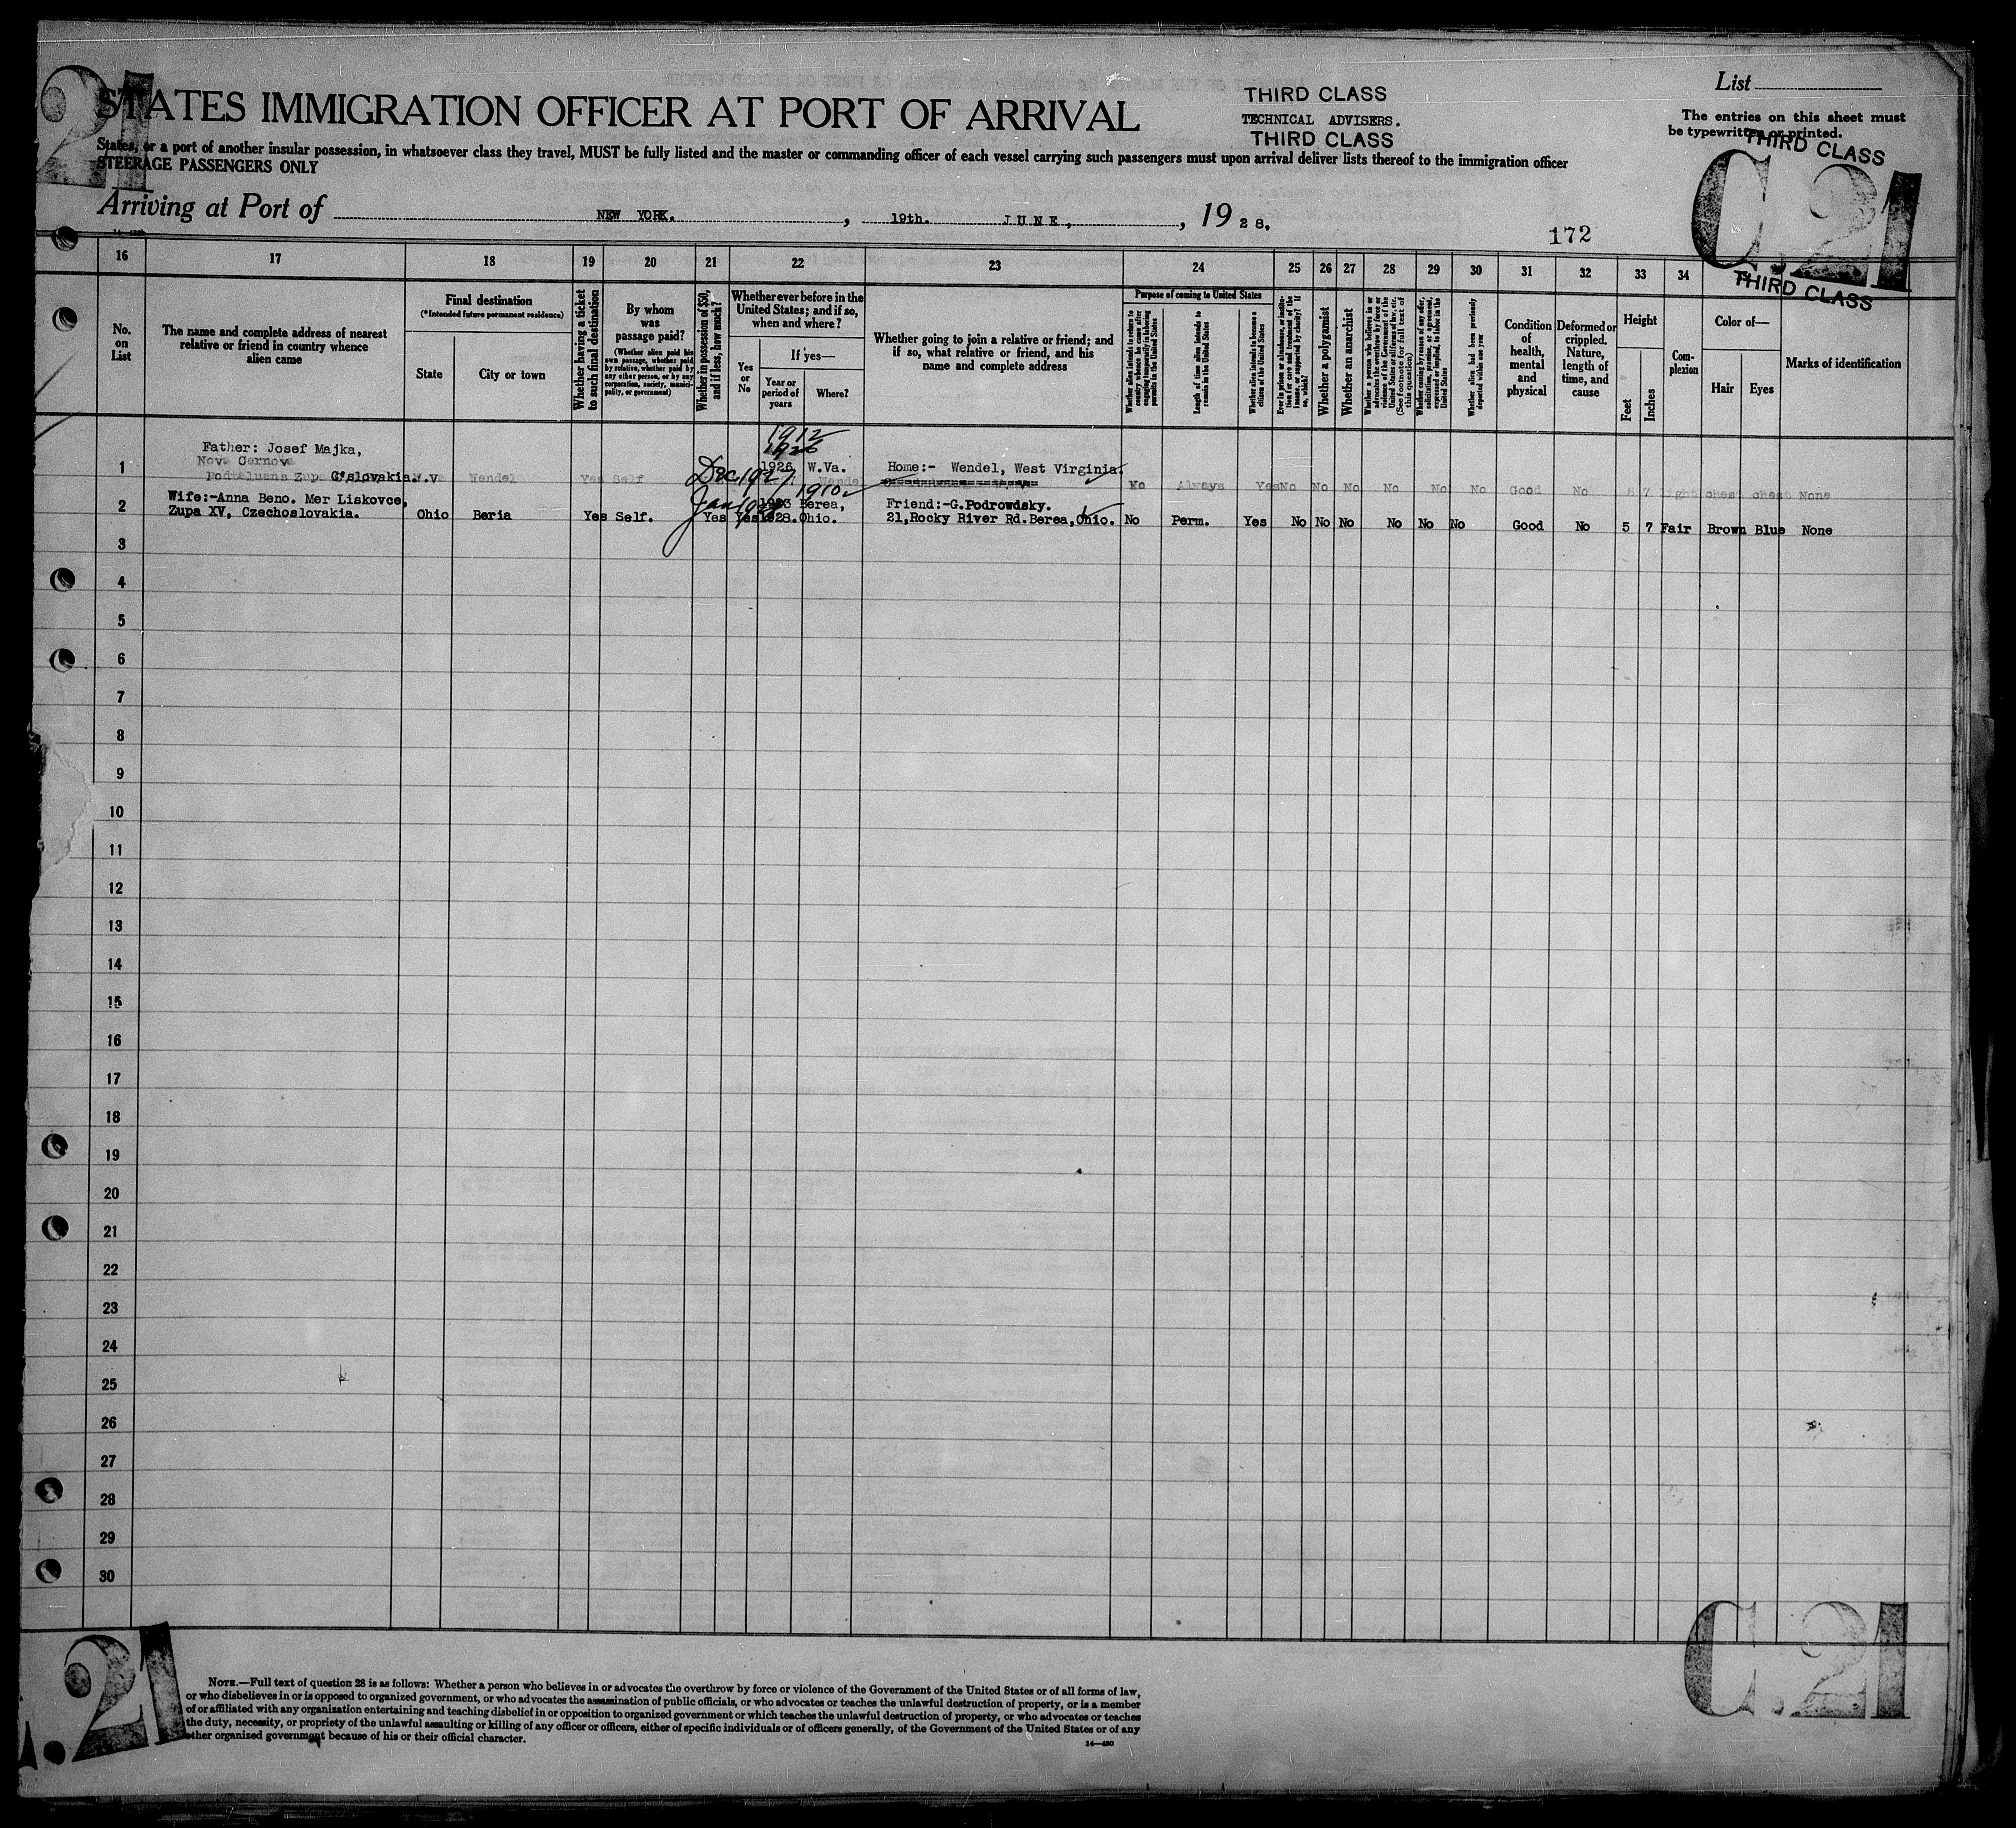 21
List
STATES IMMIGRATION OFFICER AT PORT OF ARRIVAL
THIRD CLASS
TECHNICAL ADVISERS.
THIRD CLASS
The entries on this sheet must
be typewritten or printed.
THIRD CLASS
States, or a port of another insular possession, in whatsoever class they travel, MUST be fully listed and the master or commanding officer of each vessel carrying such passengers must upon arrival deliver lists thereof to the immigration officer
STEERAGE PASSENGERS ONLY
C.21
THIRD CLASS
Arriving at Port of NEW YORK. , 19th. JUNE, , 1928.
172
16 17 18 19 20 21 22 23 24 25 26 27 28 29 30 31 32 33 34
No. on List
The name and complete address of nearest
relative or friend in country whence
alien came
Final destination
(*Intended future permanent residence)
State
City or town
Whether having a ticket
to such final destination
By whom
was
passage paid?
(Whether alien paid his
own passage, whether paid
by relative, whether paid by
any other person, or by any
corporation, society, munici-
pality, or government)
Whether in possession of $50,
and if less, how much?
Whether ever before in the
United States; and if so,
when and where?
Yes
or
No
If yes—
Year or
period of
years
Where?
Whether going to join a relative or friend; and
if so, what relative or friend, and his
name and complete address
Purpose of coming to United States
Whether alien intends to return to
country whence he came after
engaging temporarily in laboring
pursuits in the United States
Length of time alien intends to
remain in the United States
Whether alien intends to become a
citizen of the United States
Ever in prison or almshouse, or institu-
tion for care and treatment of the
insane, or supported by charity? If
so, which?
Whether a polygamist
Whether an anarchist
Whether a person who believes in or
advocates the overthrow by force or
violence of the Government of the
United States or all forms of law, etc.
(See footnote for full text of
this question)
Whether coming by reason of any offer,
solicitation, promise, or agreement,
expressed or implied, to labor in the
United States
Whether alien had been previously
deported within one year
Condition
of
health,
mental
and
physical
Deformed or
crippled.
Nature,
length of
time, and
cause
Height
Feet
Inches
Com-
plexion
Color of—
Hair
Eyes
Marks of identification
1912
1926
Father: Josef Majka,
Nova Cernova
1 C'slovakia. W.Va Wendel Yes Self Dec 1927 1926 W.Va. Wendel Home:- Wendel, West Virginia. No Always Yes No No No No No No Good No 5 7 chest chest None
1910
Wife:-Anna Beno. Mer Liskovce, Jan 1923 Berea, Friend:-G.Podrowdsky.
2 Zupa XV, Czechoslovakia. Ohio Beria Yes Self. Yes Yes 1928. Ohio. 21,Rocky River Rd.Berea,Ohio. No Perm. Yes No No No No No No Good No 5 7 Fair Brown Blue None
3
4
5
6
7
8
9
10
11
12
13
14
15
16
17
18
19
20
21
22
23
24
25
26
27
28
29
30
.21
C.21
NOTE.—Full text of question 28 is as follows: Whether a person who believes in or advocates the overthrow by force or violence of the Government of the United States or of all forms of law,
or who disbelieves in or is opposed to organized government, or who advocates the assassination of public officials, or who advocates or teaches the unlawful destruction of property, or is a member
of or affiliated with any organization entertaining and teaching disbelief in or opposition to organized government or which teaches the unlawful destruction of property, or who advocates or teaches
the duty, necessity, or propriety of the unlawful assaulting or killing of any officer or officers, either of specific individuals or of officers generally, of the Government of the United States or of any
other organized government because of his or their official character.
14—430